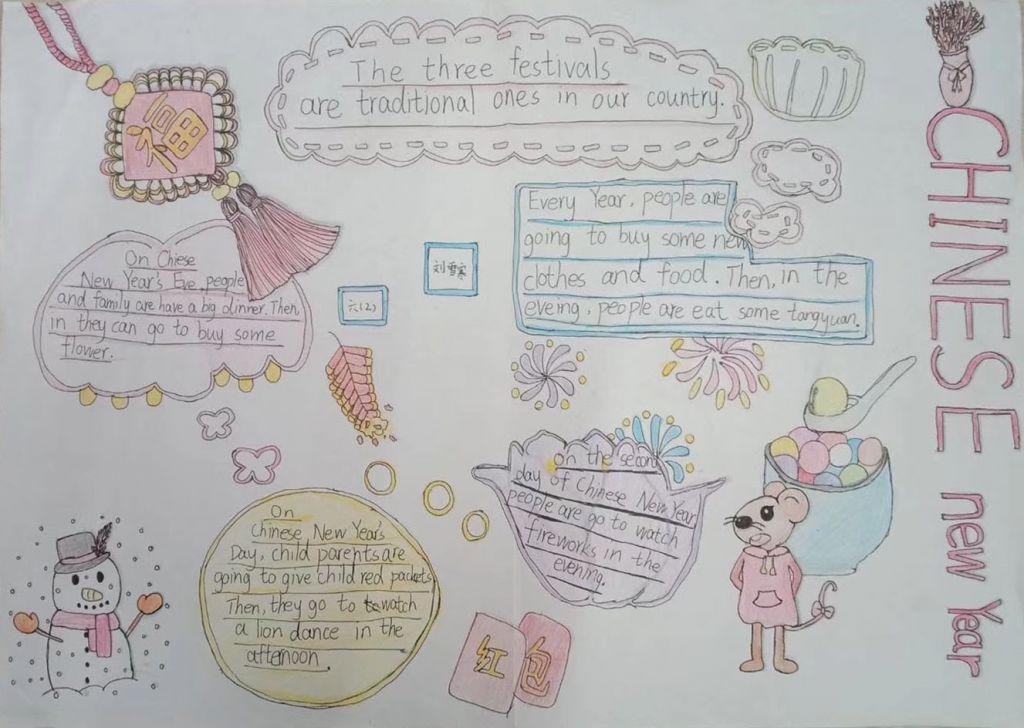 The three festivals
are traditional ones in our country.
福
CHINESE new Year
Every Year, people are
going to buy some new
clothes and food. Then, in the
eveing, people are eat some tangyuan.
刘雪寒
六(2)
On Chiese
New Year's Eve, people
and family are have a big dinner. Then,
in they can go to buy some
flower.
On the second
day of Chinese New Year,
people are go to watch
fireworks in the
evening.
On
Chinese New Year's
Day, child parents are
going to give child red packets
Then, they go to watch
a lion dance in the
afternoon.
红包